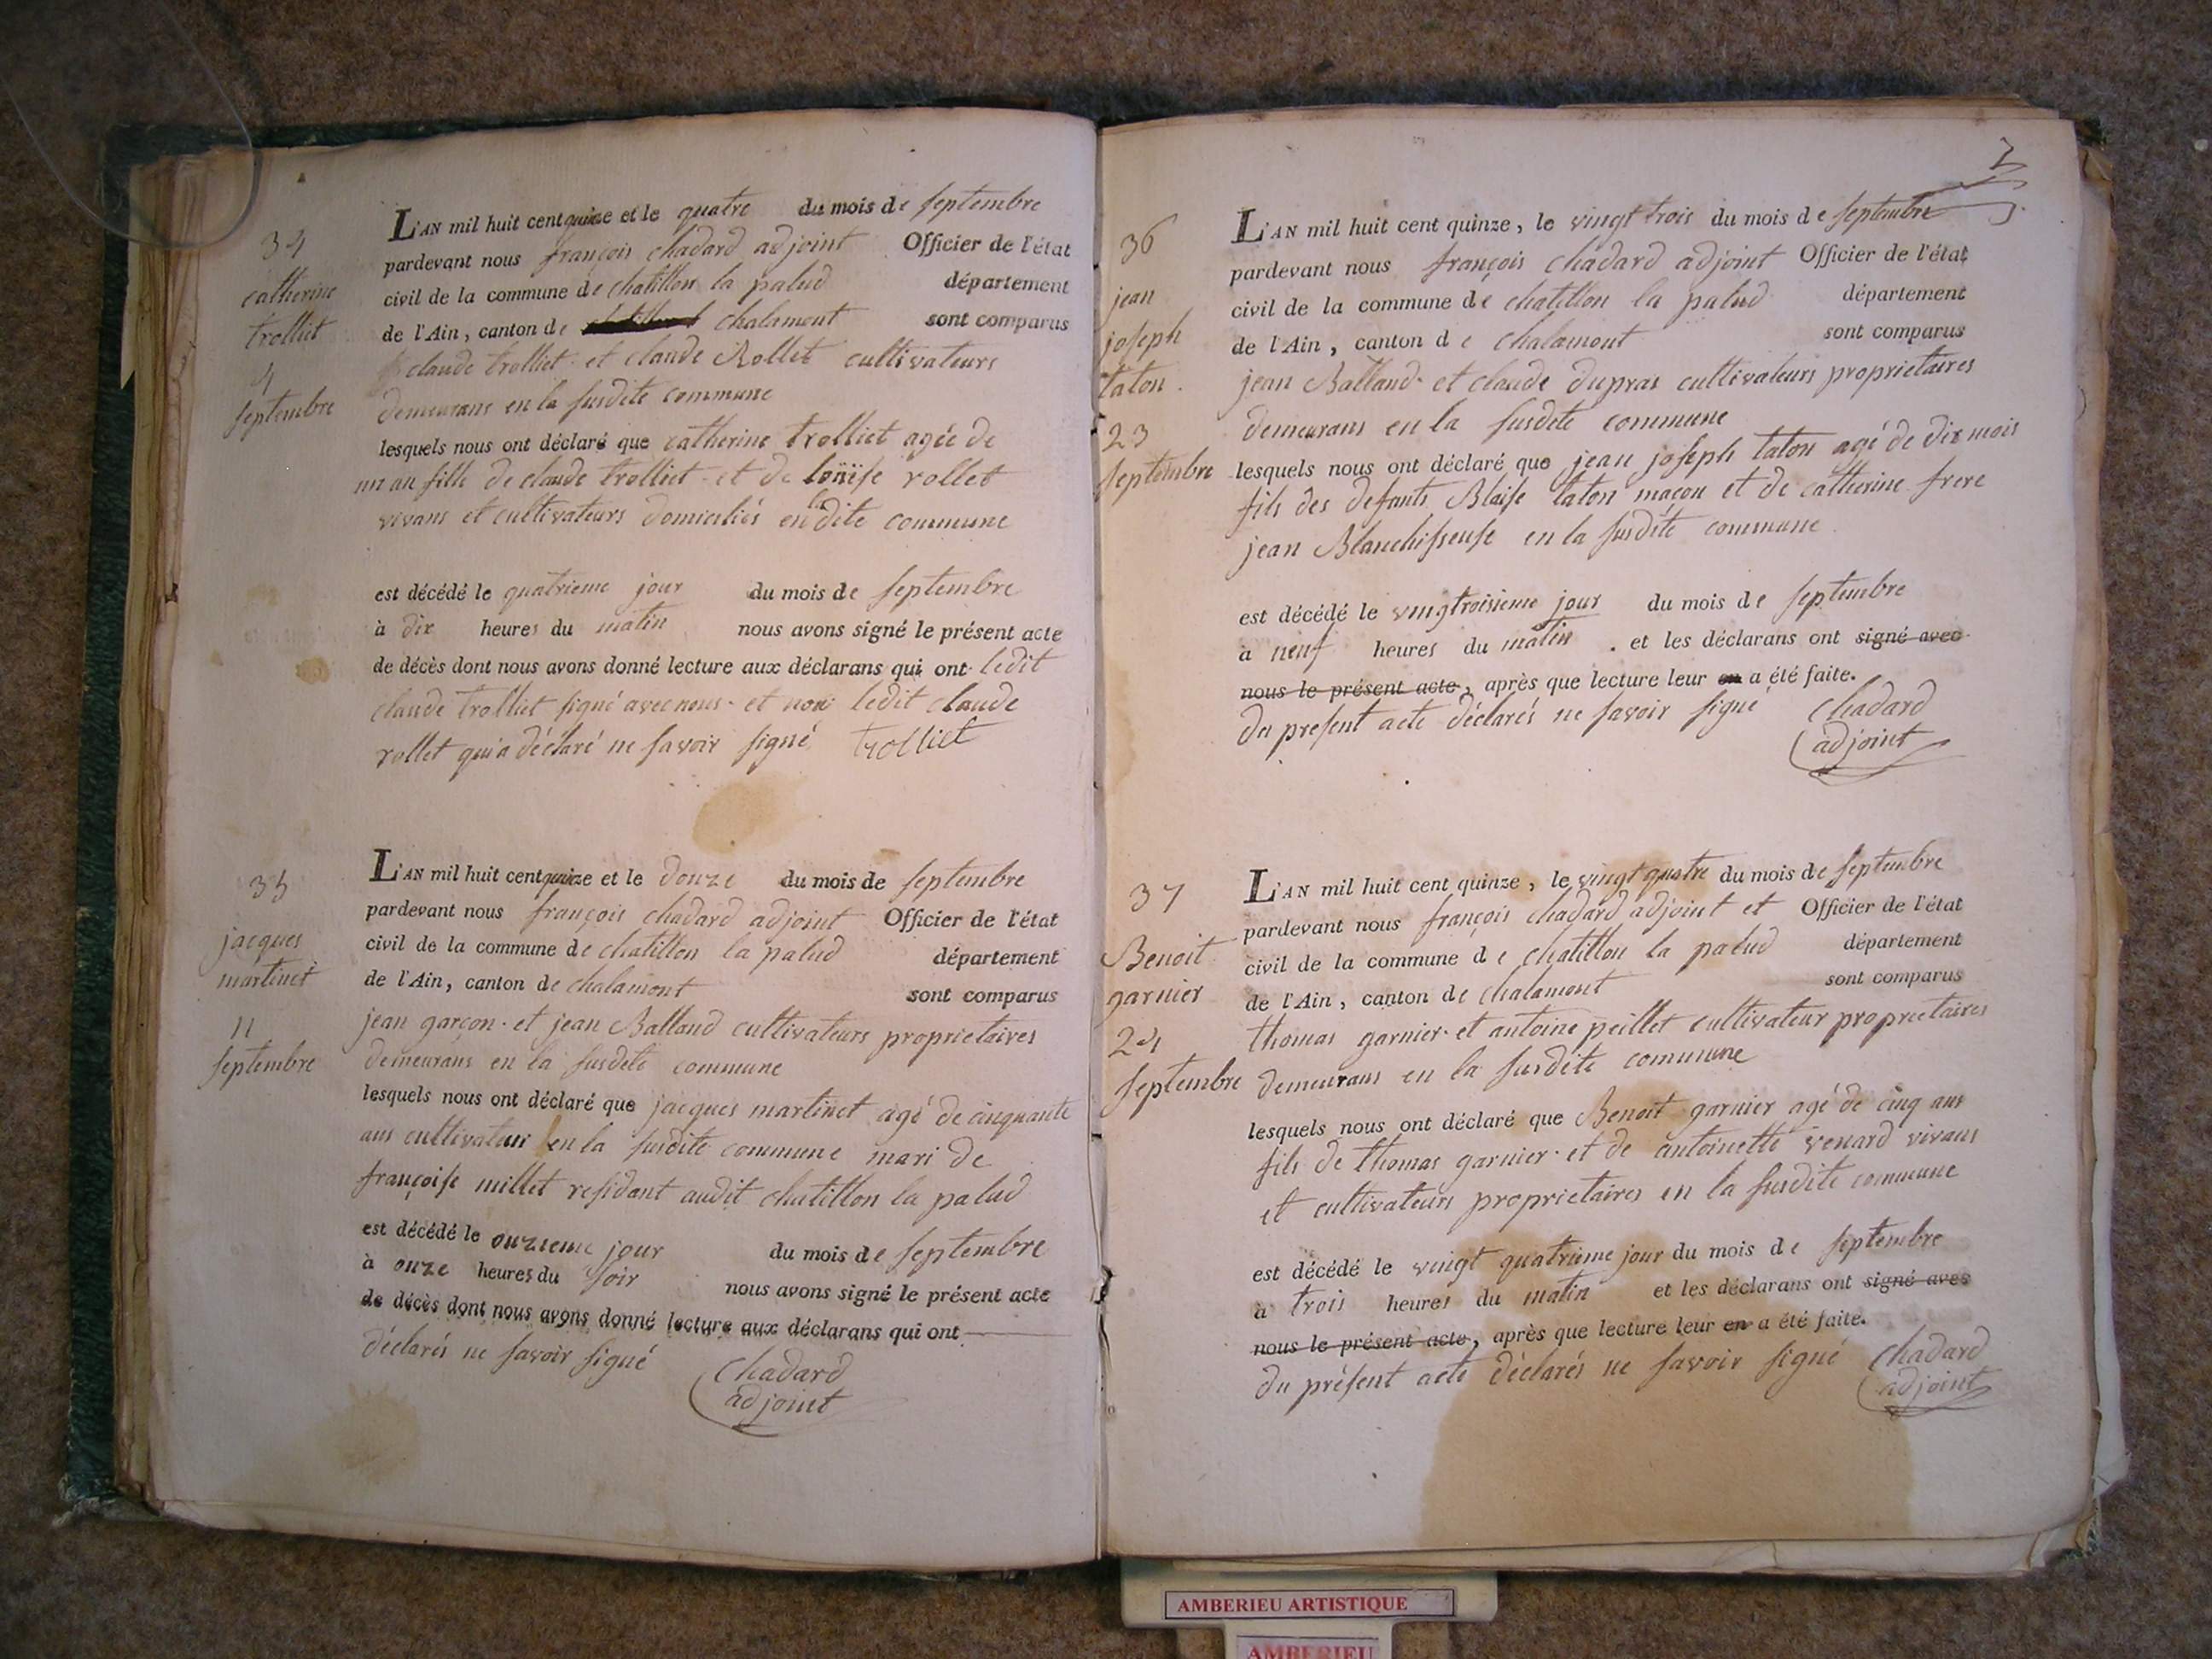 34
catherine
trolliet
4
septembre
L'AN mil huit cent quinze et le quatre du mois de septembre
pardevant nous françois chadard adjoint Officier de l'état
civil de la commune de chatillon la palud département
de l'Ain, canton de chalamont sont comparus
claude trolliet et claude Rollet cultivateurs
demeurans en la susdite commune
lesquels nous ont déclaré que catherine trolliet agée de
un an fille de claude trolliet et de loüise rollet
vivans et cultivateurs domiciliés en la dite commune
est décédé le quatrieme jour du mois de septembre
à dix heures du matin nous avons signé le présent acte
de décès dont nous avons donné lecture aux déclarans qui ont ledit
claude trolliet signé avec nous et non ledit claude
rollet qui a déclaré ne savoir signé trolliet
35
jacques
martinet
11
septembre
L'AN mil huit cent quinze et le douze du mois de septembre
pardevant nous françois chadard adjoint Officier de l'état
civil de la commune de chatillon la palud département
de l'Ain, canton de chalamont sont comparus
jean garçon et jean Balland cultivateurs proprietaires
demeurans en la susdite commune
lesquels nous ont déclaré que jacques martinet agé de cinquante
ans cultivateur en la susdite commune mari de
françoise millet residant audit chatillon la palud
est décédé le onzieme jour du mois de septembre
à onze heures du soir nous avons signé le présent acte
de décès dont nous avons donné lecture aux déclarans qui ont
déclarés ne savoir signé chadard
adjoint
7
36
jean
joseph
taton
23
septembre
L'AN mil huit cent quinze, le vingt trois du mois de septembre
pardevant nous françois chadard adjoint Officier de l'état
civil de la commune de chatillon la palud département
de l'Ain, canton de chalamont sont comparus
jean Balland et claude dupras cultivateurs proprietaires
demeurans en la susdite commune
lesquels nous ont déclaré que jean joseph taton agé de dix mois
fils des defants Blaise taton maçon et de catherine frere
jean Blanchisseuse en la susdite commune
est décédé le vingtroisieme jour du mois de septembre
à neuf heures du matin . et les déclarans ont signé avec
nous le présent acte, après que lecture leur en a été faite.
du present acte déclarés ne savoir signé chadard
adjoint
37
Benoit
garnier
24
septembre
L'AN mil huit cent quinze, le vingt quatre du mois de septembre
pardevant nous françois chadard adjoint et Officier de l'état
civil de la commune de chatillon la palud département
de l'Ain, canton de chalamont sont comparus
thomas garnier et antoine peillet cultivateur proprietaires
demeurans en la susdite commune
lesquels nous ont déclaré que Benoit garnier agé de cinq ans
fils de thomas garnier et de antoinette venard vivans
et cultivateurs proprietaires en la susdite commune
est décédé le vingt quatrieme jour du mois de septembre
à trois heures du matin et les déclarans ont signé avec
nous le présent acte, après que lecture leur en a été faite.
du présent acte déclarés ne savoir signé chadard
adjoint
AMBERIEU ARTISTIQUE
AMBERIEU